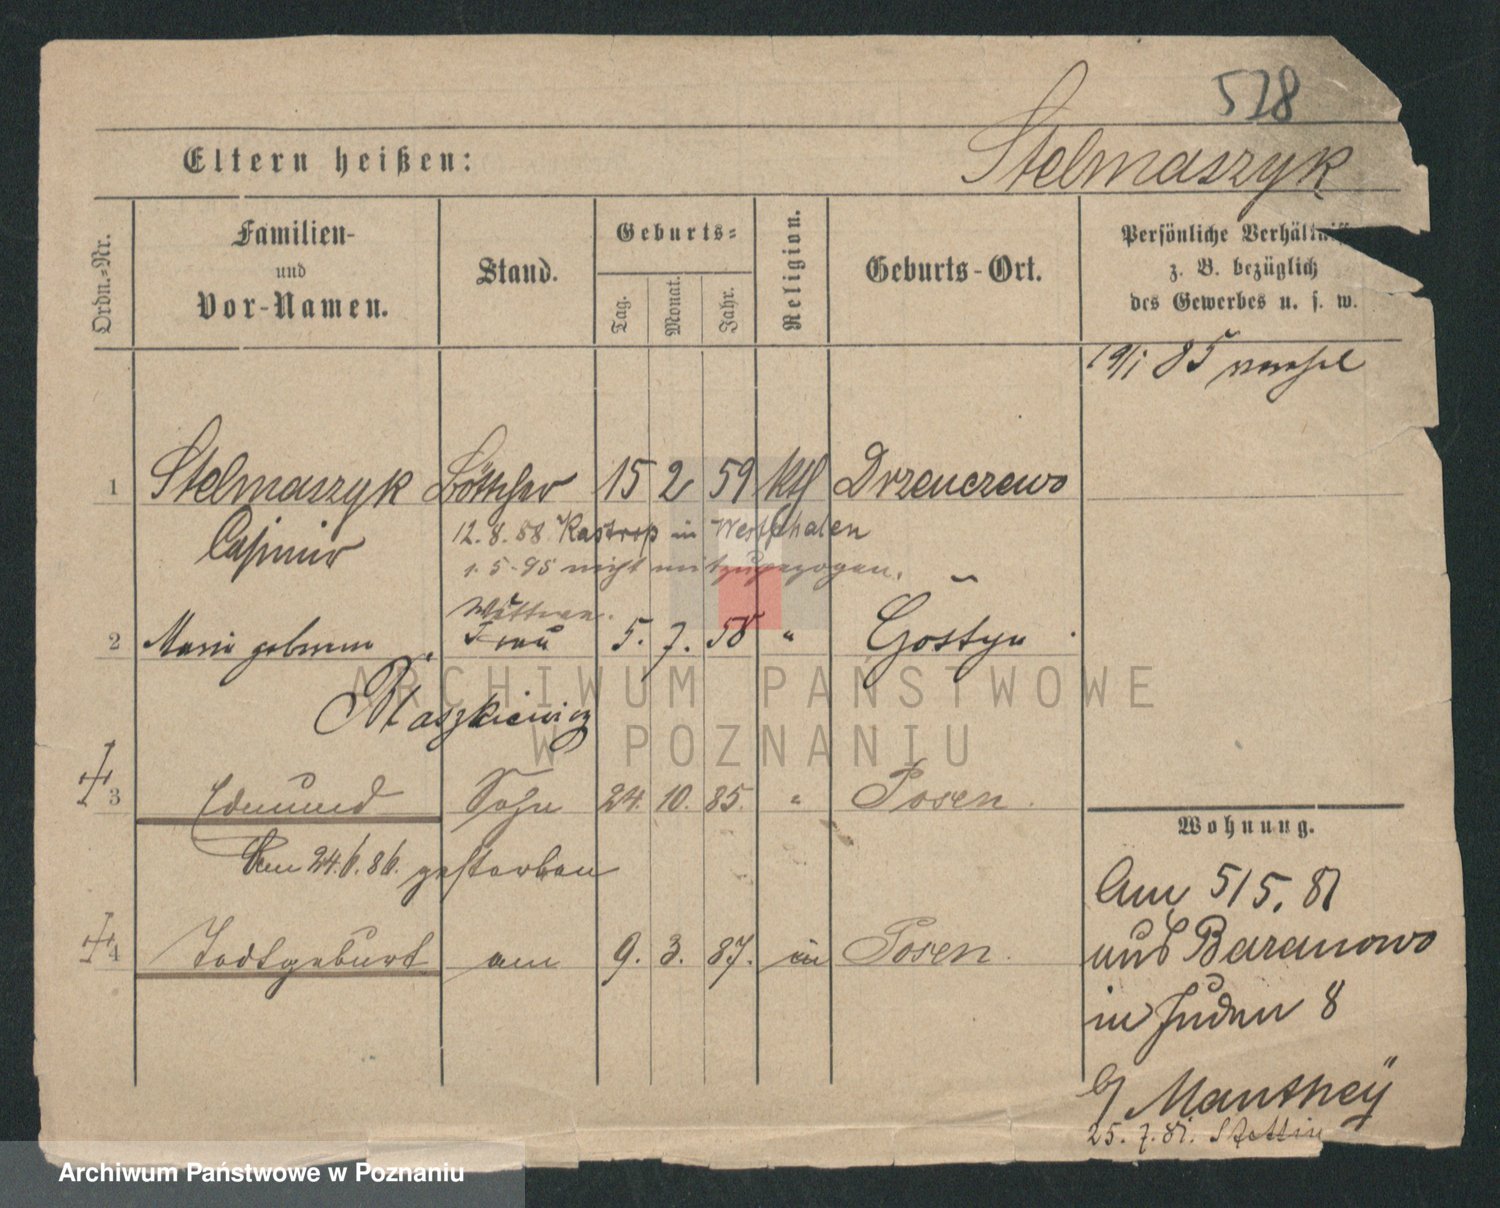 528
Eltern heißen:
Stelmaszyk
Ordn.-Nr.
Familien-
und
Vor-Namen.
Stand.
Geburts-
Tag.
Monat.
Jahr.
Religion.
Geburts-Ort.
Persönliche Verhältniss
z. B. bezüglich
des Gewerbes u. s. w.
19/1 85
1 Stelmaszyk Böttcher 15 2 59 kth Drzenczewo
Casimir
12. 8. 58 Kastrop in Westphalen
1. 5. 95 nicht mitzugezogen.
Wittwe.
2 Maria geborene Frau 5. 7. 58 " Gostyn
Blaszkiewicz
3 Edmund Sohn 24. 10. 85. " Posen.
Am 24.6.86. gestorben
4 Todtgeburt am 9. 3. 87. in Posen.
Wohnung.
Am 5/5. 81
aus Baranowo
in Juden 8
b/ Manthey
25. 7. 81. Stettin
ARCHIWUM PAŃSTWOWE
W POZNANIU
Archiwum Państwowe w Poznaniu